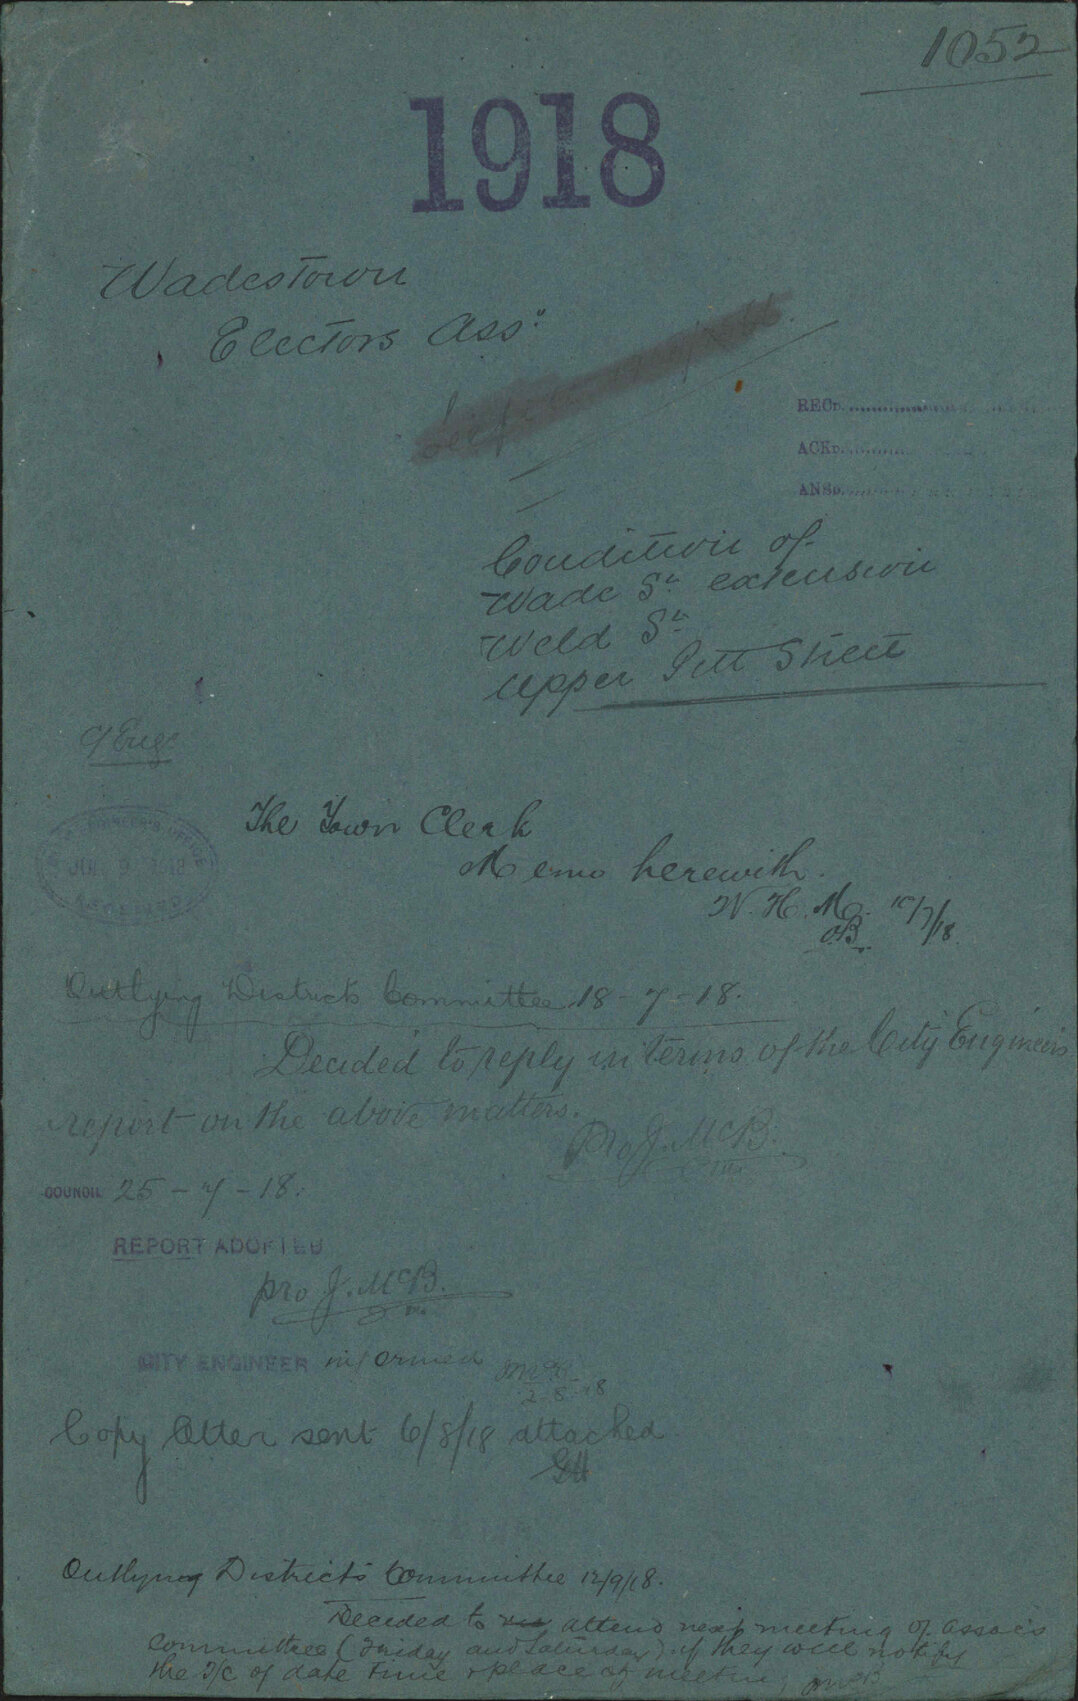 1052
1918
Wadestown
Electors Assn.
RECD.
ACKD.
ANSD.
Condition of
Wade St. extension
Weld St.
Upper Pitt Street
C/Eng.
ENGINEER'S OFFICE
9 1918
The Town Clerk
Memo herewith.
W. H. M. 10/7/18
Outlying Districts Committee 18-7-18.
Decided to reply in terms of the City Engineers
report on the above matters.
pro J. McB.
COUNCIL 25-7-18.
REPORT ADOPTED
pro J. McB.
CITY ENGINEER informed
2.8.18
Copy letter sent 6/8/18 attached
Outlying Districts Committee 12/9/18.
Decided to attend next meeting of Assoc's
Committee (Friday and Saturday) if they will notify
the T/C of date time & place of meeting